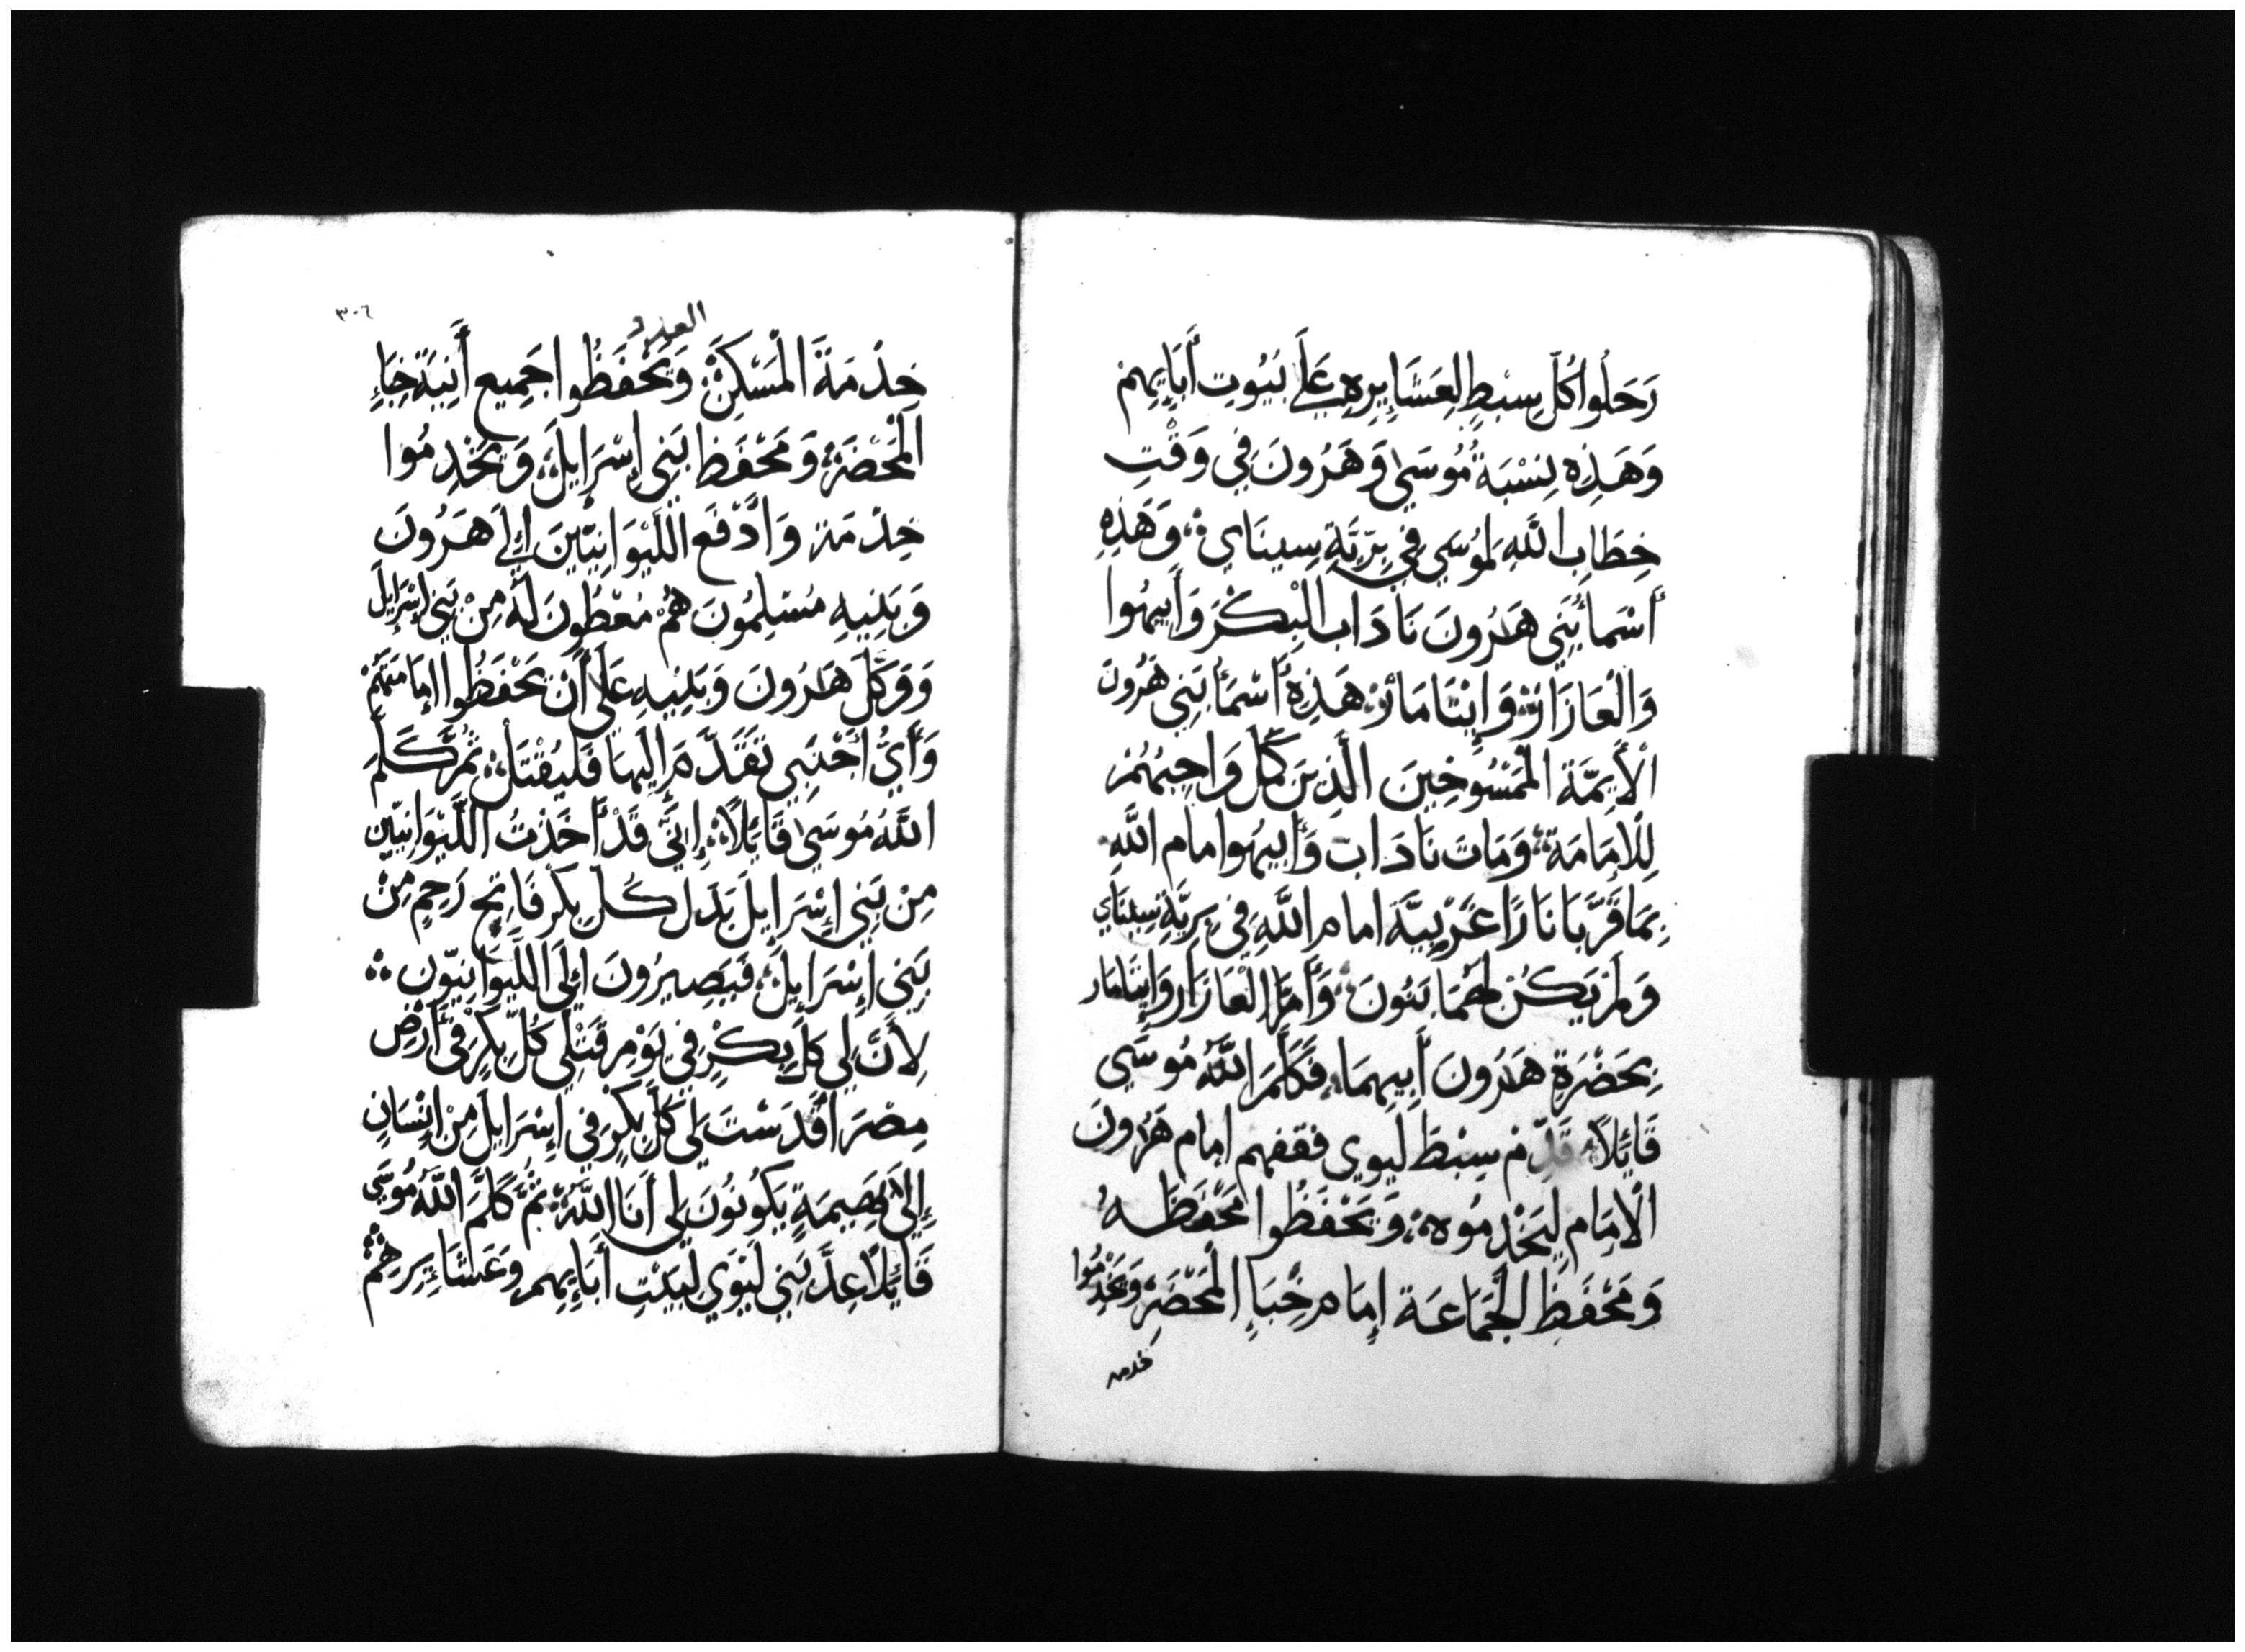 رَحَلُوا كُلّ سِبْطٍ لِعَشَايِرِهِ عَلَى بَيُوتِ أَبَايِهِمْ
وَهَذِهِ نِسْبَةُ مُوسَى وَهَرُونَ فِي وَقْتِ
خِطَابِ اللَّهِ لِمُوسَى فِي بَرِّيَّةِ سِينَاي وَهَذِهِ
أَسْمَأُ بَنِي هَرُونَ نَادَاب الْبِكْرَ وَأَبِيهُوا
وَالْعَازَارْ وَإِيتَامَارْ هَذِهِ أَسْمَأُ بَنِي هَرُونَ
الْأَيِمَّة الْمَمْسُوحِينَ الَّذِينَ كَمَّلَ وَاجِبُهُمْ
لِلْإِمَامَةِ وَمَاتَ نَادَاب وَأَبِيهُوا امام اللَّهِ
بِمَا قَرَّبَا نَارًا غَرِيبَةً امام اللَّهِ فِي بَرِيَّةِ سِينَاي
وَلَمْ يَكُنْ لَهُمَا بَنُونَ وَأَمَّا الْعَازَار وَإِيتَامَار
بِحَضْرَةِ هَرُونَ أَبِيهِمَا فَكَلَّمَ اللَّهُ مُوسَى
قَايِلًا قَدِّمْ سِبْطَ لِيوِي فقفهم امام هَرُونَ
الْامَامِ لِيَخْدِمُوهُ وَيَحْفَظُوا مَحْفَظَهُ
وَمَحْفَظِ الْجَمَاعَة إِمَام خِبَاءِ الْمَحْضَرِ وَيَخْدِمُوا
خدمة
٣٠٦
العدد
خِدْمَةَ الْمَسْكِنْ وَيَحْفَظُوا جَمِيع أَنِيَةَ خِبَاءِ
الْمَحْضَرِ وَمَحْفَظ بَنِي إِسْرَايِلَ وَيَخْدِمُوا
خِدْمَتَهُ وَادْفَع اللِّيْوَانِيِّينَ إِلَى هَرُونَ
وَبَنِيهِ مُسْلِمُونَ هُمْ مُعْطُونَ لَهُ مِنْ بَنِي إِسْرَايِلَ
وَوَكِّلْ هَارُونَ وَبَنِيهِ عَلَى أَنْ يَحْفَظُوا إِمَامَتَهُمْ
وَأَيُّ أَجْنَبِي تَقَدَّمَ إِلَيْهَا فَلْيُقْتَلْ ثُمَّ كَلَّمَ
اللَّهُ مُوسَى قَايِلًا إِنِّي قَدْ أَخَذْتُ اللِّيْوَانِيِّين
مِنْ بَنِي إِسْرَايِلَ بَدَل كُلِّ بِكْرٍ فَاتِحِ رَحِمٍ مِنْ
بَنِي إِسْرَايِلَ فَيَصِيرُونَ إِلَى اللِّيوَانِيّون
لِأَنَّ لِي كُلَّ بِكْرٍ فِي يَوْمِ قَتْلِي كُلَّ بِكْرٍ فِي أَرْضِ
مِصْرَ أَقْدَسْتُ لِي كُلّ بِكْرٍ فِي إِسْرَايِلَ مِنْ إِنْسَانٍ
إِلَى بَهِيمَةٍ يَكُونُونَ لِي أَنَا اللَّهُ ثُمَّ كَلَّمَ اللَّهُ مُوسَى
قَايِلًا عِدَّ بَنِي لَيْوِي لِبَيْتِ أَبَايِهِم وَعَشَايِرِهِمْ